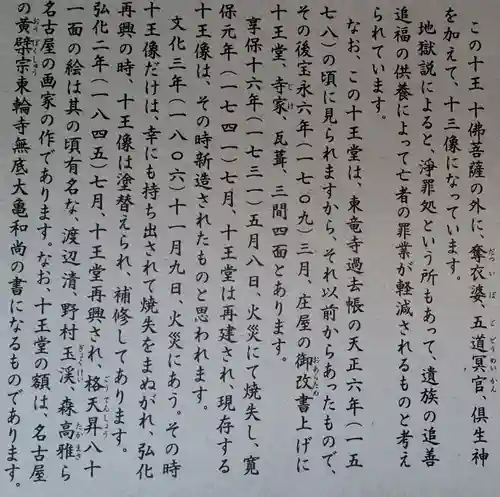 この十王 十佛菩薩の外に、奪衣婆、五道冥官、倶生神
を加えて、十三像になっています。
地獄説によると、淨罪処という所もあって、遺族の追善
追福の供養によって亡者の罪業が軽減されるものと考え
られています。
なお、この十王堂は、東竜寺過去帳の天正六年（一五
七八）の頃に見られますから、それ以前からあったもので、
その後宝永六年（一七〇九）三月、庄屋の御改書上げに
十王堂、寺家、瓦葺、三間四面とあります。
享保十六年（一七三一）五月八日、火災にて焼失し、寛
保元年（一七四一）七月、十王堂は再建され、現存する
十王像は、その時新造されたものと思われます。
文化三年（一八〇六）十一月九日、火災にあう。その時
十王像だけは、幸にも持ち出されて焼失をまぬがれ、弘化
再興の時、十王像は塗替えられ、補修してあります。
弘化二年（一八四五）七月、十王堂再興され、格天昇八十
一面の絵は其の頃有名な、渡辺清、野村玉溪、森高雅ら
名古屋の画家の作であります。なお、十王堂の額は、名古屋
の黄檗宗東輪寺無底大亀和尚の書になるものであります。